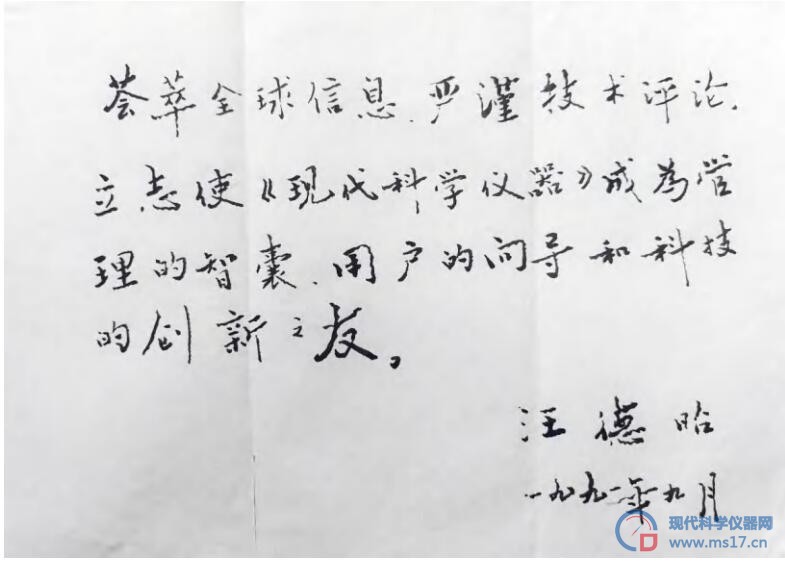 荟萃全球信息、严谨技术评论，
立志使《现代科学仪器》成为管
理的智囊、用户的向导和科技
的创新之友。
汪德昭
一九九一年九月
现代科学仪器网
www.ms17.cn